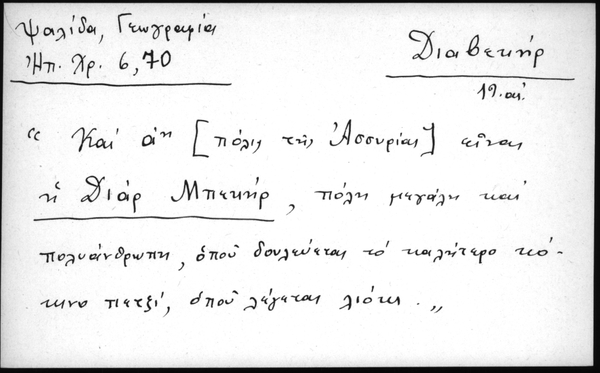 Ψαλίδα, Γεωγραφία
Ἠπ. Χρ. 6, 70
Διαβεκήρ
19. αἰ.
“ Καί ἄλλη [πόλις τῆς Ἀσσυρίας] εἶναι
ἡ Διάρ Μπεκήρ, πόλη μεγάλη καί
πολυάνθρωπη, ὁποῦ δουλεύεται τό καλήτερο κό-
κινο πετζί, ὁποῦ λέγεται